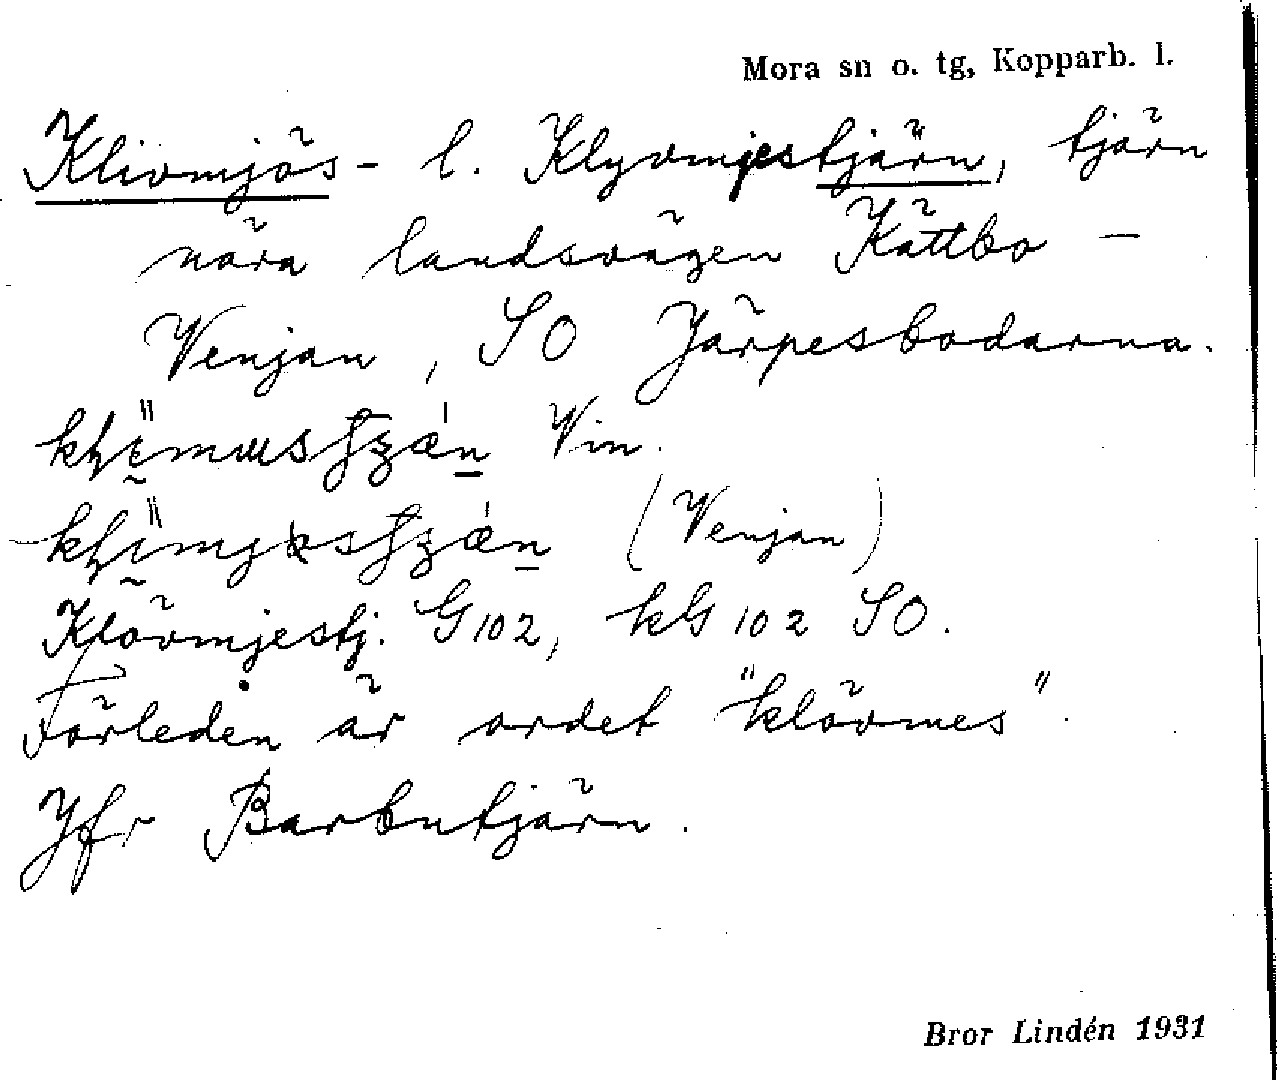 Mora sn o. tg, Kopparb. l.
Klivmjös- l. Klyvmjestjärn, tjärn
nära landsvägen Kättbo –
Venjan, SO Järpesbodarna.
Vin.
(Venjan)
Klövmjestj. G 102, kG 102 SO.
Förleden är ordet "klövmes".
Jfr Barbutjärn.
Bror Lindén 1931